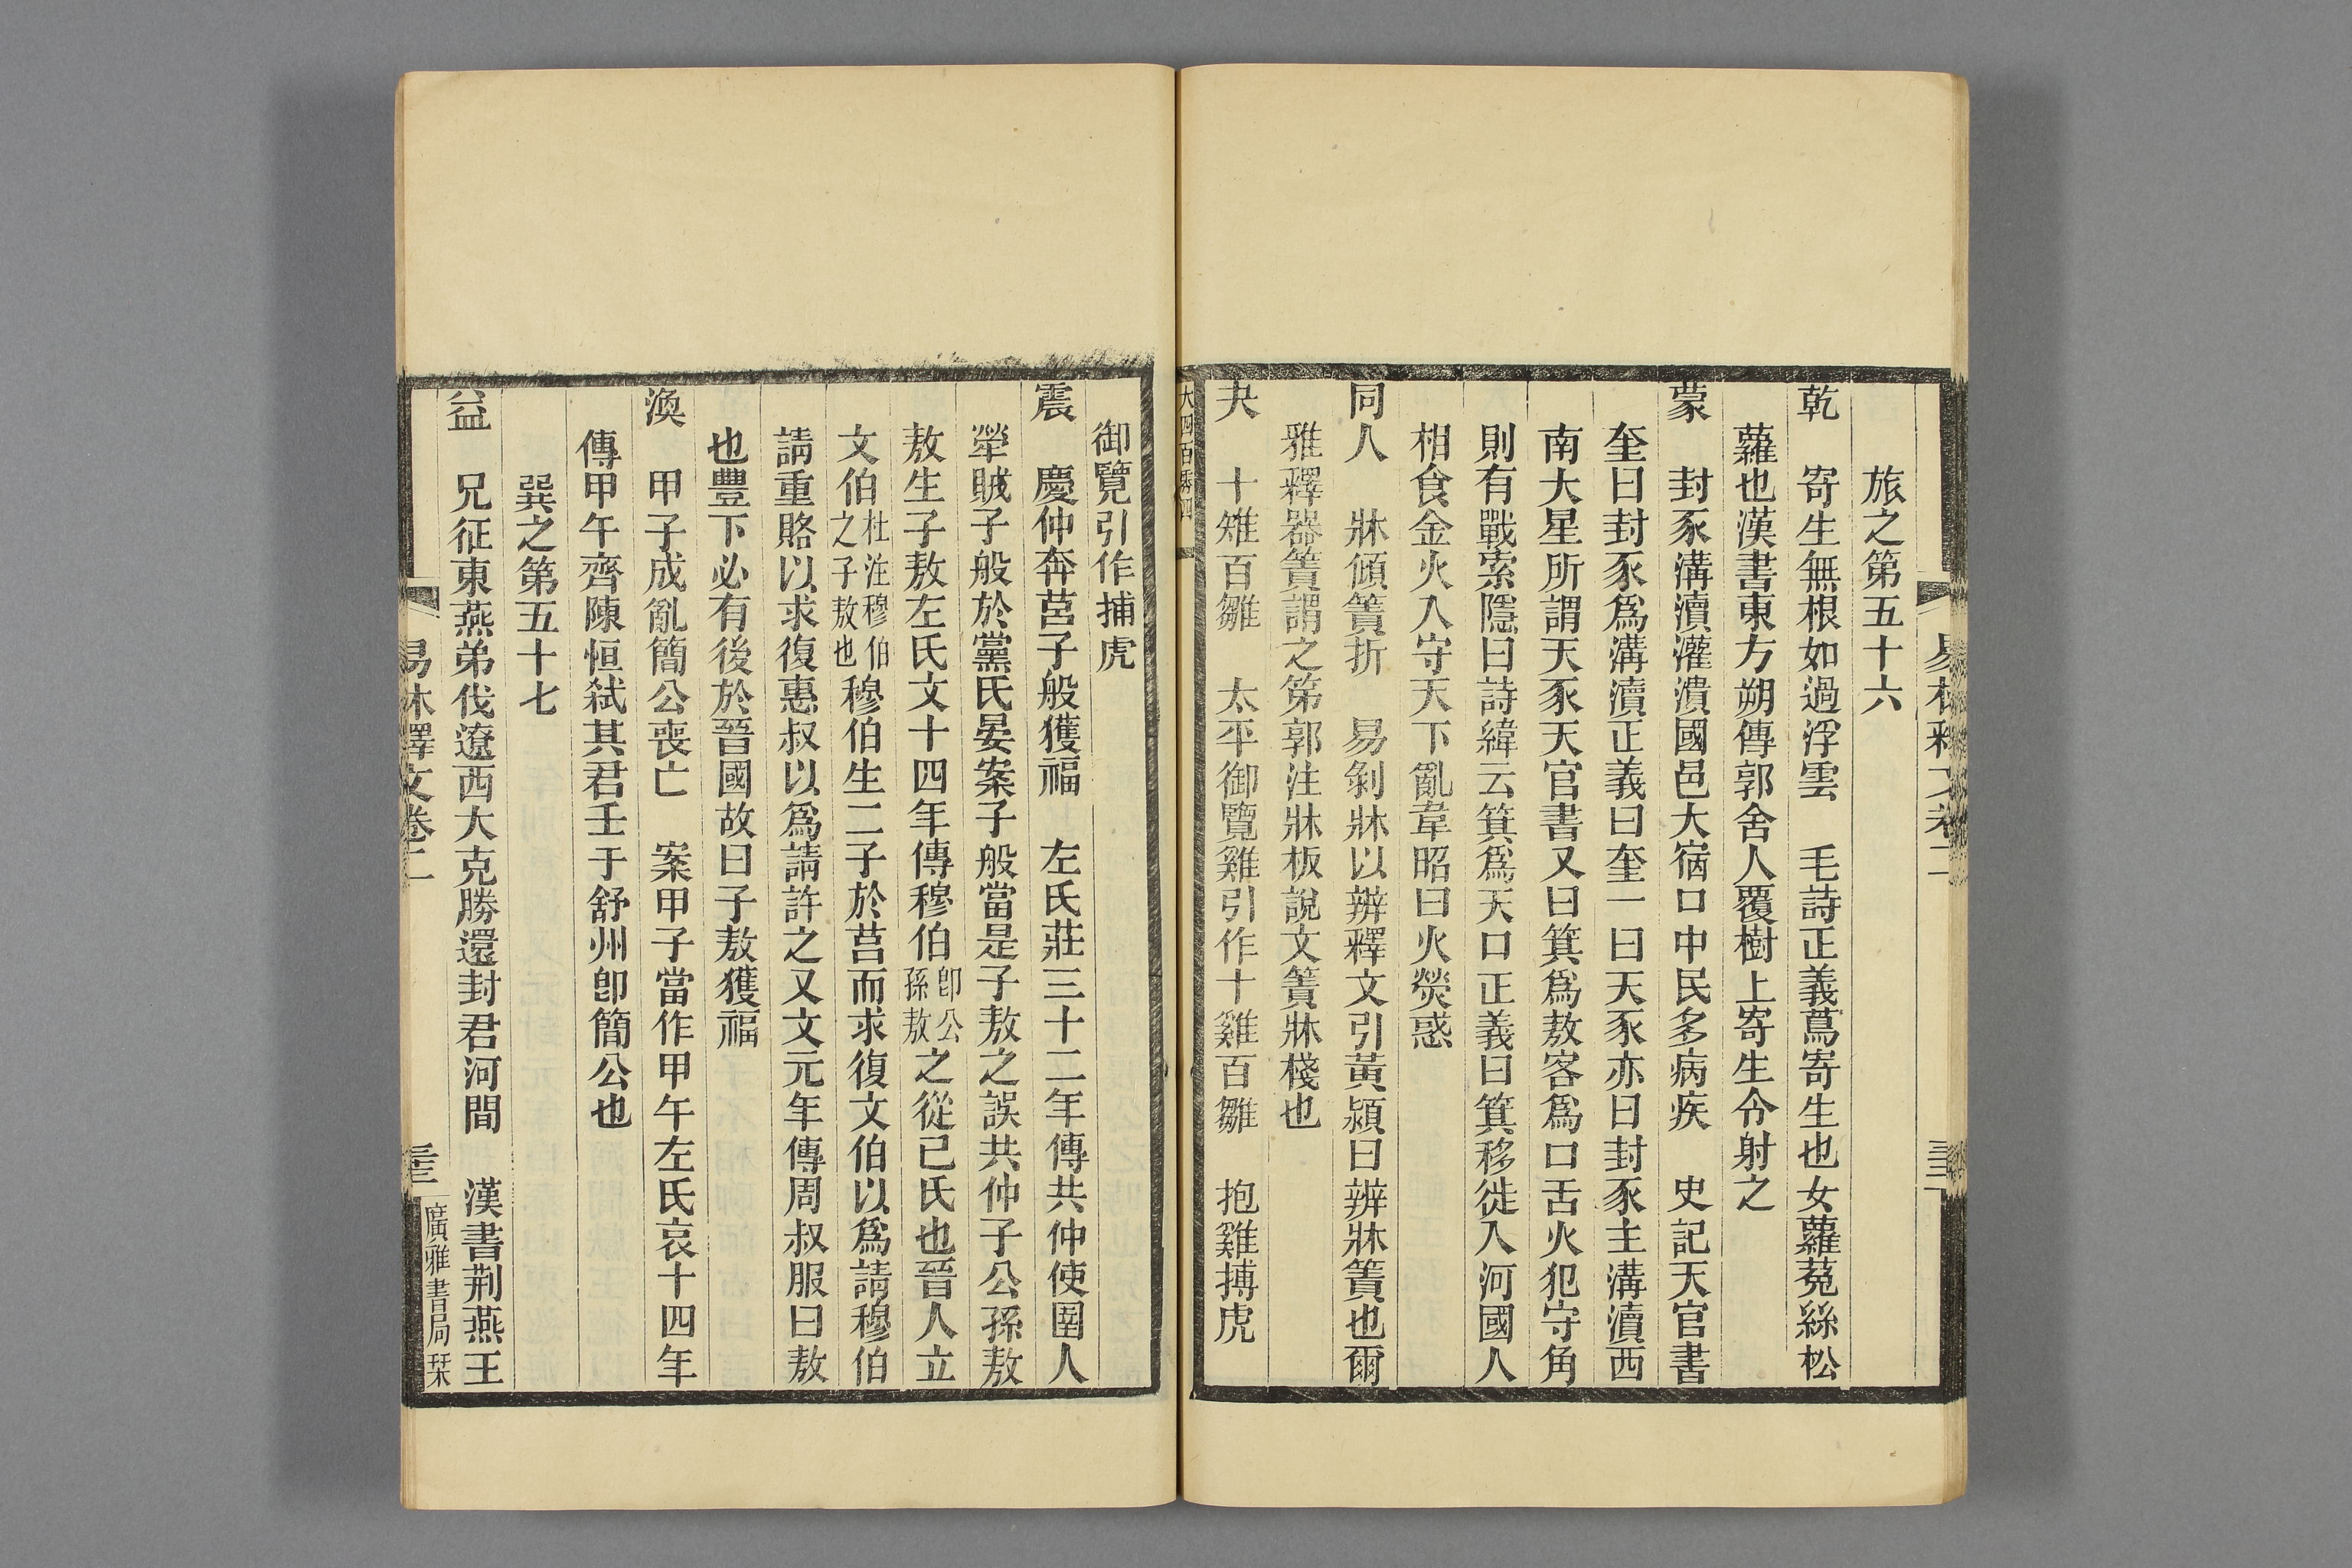 易林釋文卷二
旅之第五十六
乾　寄生無根如過浮雲　毛詩正義蔦寄生也女蘿菟絲松
蘿也漢書東方朔傳郭舍人覆樹上寄生令射之
蒙　封豕溝瀆灌潰國邑大宿口中民多病疾　史記天官書
奎曰封豕爲溝瀆正義曰奎一曰天豕亦曰封豕主溝瀆西
南大星所謂天豕天官書又曰箕爲敖客爲口舌火犯守角
則有戰索隱曰詩緯云箕爲天口正義曰箕移徙入河國人
相食金火入守天下亂韋昭曰火熒惑
同人　牀傾簀折　易剝牀以辨釋文引黃潁曰辨牀簀也爾
雅釋器簀謂之笫郭注牀板說文簀牀棧也
夬　十雉百雛　太平御覽雞引作十雞百雛　抱雞搏虎
大四百
御覽引作捕虎
震　慶仲奔莒子般獲福　左氏莊三十二年傳共仲使圉人
犖賊子般於黨氏晏案子般當是子敖之誤共仲子公孫敖
敖生子敖左氏文十四年傳穆伯卽公孫敖之從已氏也晉人立
文伯杜注穆伯之子敖也穆伯生二子於莒而求復文伯以爲請穆伯
請重賂以求復惠叔以爲請許之又文元年傳周叔服曰敖
也豐下必有後於晉國故曰子敖獲福
渙　甲子成亂簡公喪亡　案甲子當作甲午左氏哀十四年
傳甲午齊陳恒弒其君壬于舒州卽簡公也
巽之第五十七
益　兄征東燕弟伐遼西大克勝還封君河間　漢書荆燕王
易林釋文卷二
廣雅書局栞